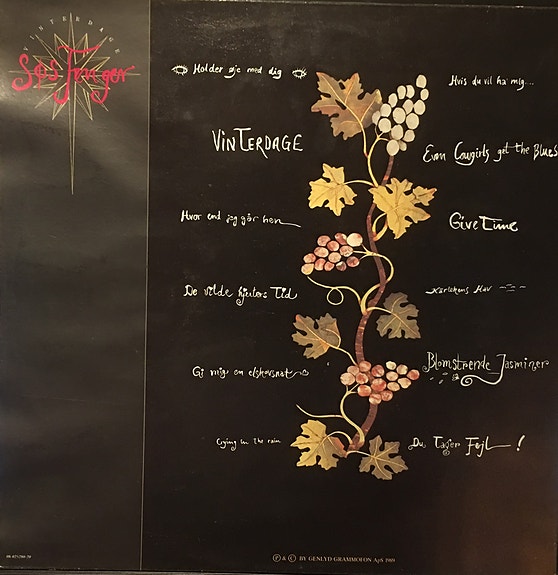 VINTERDAGE
Søs Fenger
Holder øje med dig
VINTERDAGE
Hvor end jeg går hen
De vilde hjerters Tid
Gi mig en elskovsnat
Crying in the rain
Hvis du vil ha' mig....
Even Cowgirls get the Blues
Give Time
Kärlekens Hav
Blomstrende Jasminer
Du Tager Fejl !
Ⓟ & Ⓒ BY GENLYD GRAMMOFON ApS 1989